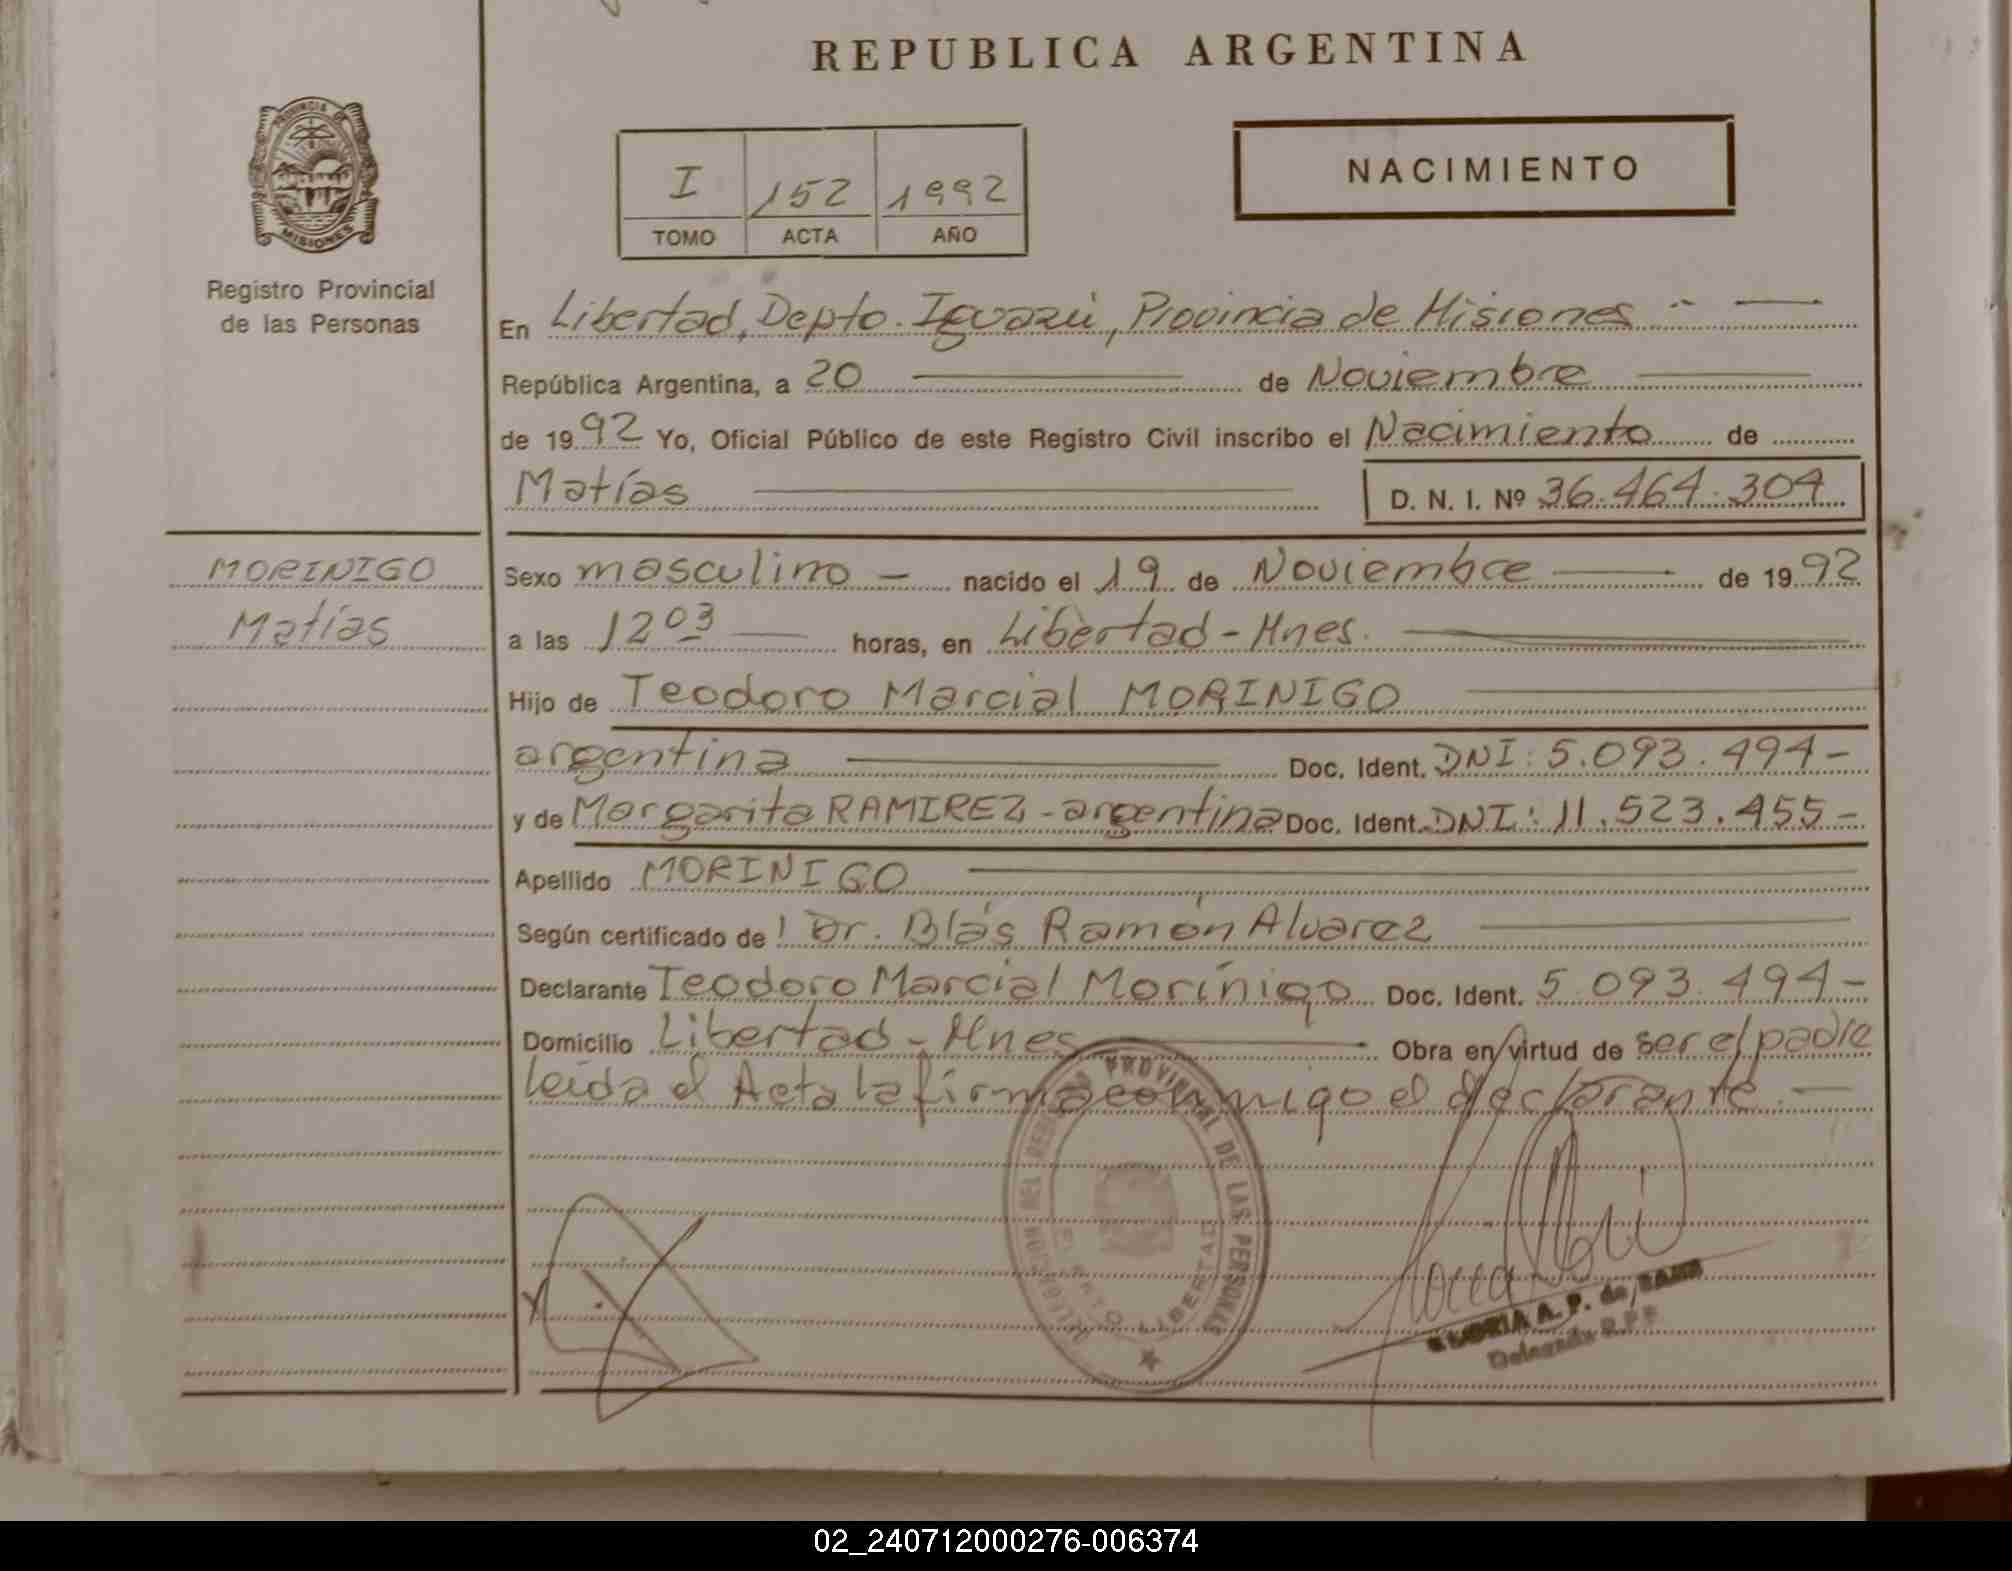 REPUBLICA ARGENTINA
PROVINCIA DE
MISIONES
Registro Provincial
de las Personas
I 152 1992
TOMO ACTA AÑO
NACIMIENTO
En Libertad, Depto. Iguazú, Provincia de Misiones
República Argentina, a 20 de Noviembre
de 1992 Yo, Oficial Público de este Registro Civil inscribo el Nacimiento de
Matías D. N. I. Nº 36.464.304
MORINIGO
Matías
Sexo masculino nacido el 19 de Noviembre de 1992
a las 12 03 horas, en Libertad - Mnes.
Hijo de Teodoro Marcial MORINIGO
argentina Doc. Ident. DNI: 5.093.494-
y de Margarita RAMIREZ - argentina Doc. Ident. DNI: 11.523.455-
Apellido MORINIGO
Según certificado de Dr. Blás Ramón Alvarez
Declarante Teodoro Marcial Morínigo Doc. Ident. 5.093.494-
Domicilio Libertad - Mnes Obra en virtud de ser el padre
leída el Acta la firma conmigo el declarante.
PROVINCIAL DE LAS PERSONAS
LIBERTAD
GLORIA A. P. de
Delegada R.P.P.
02_240712000276-006374